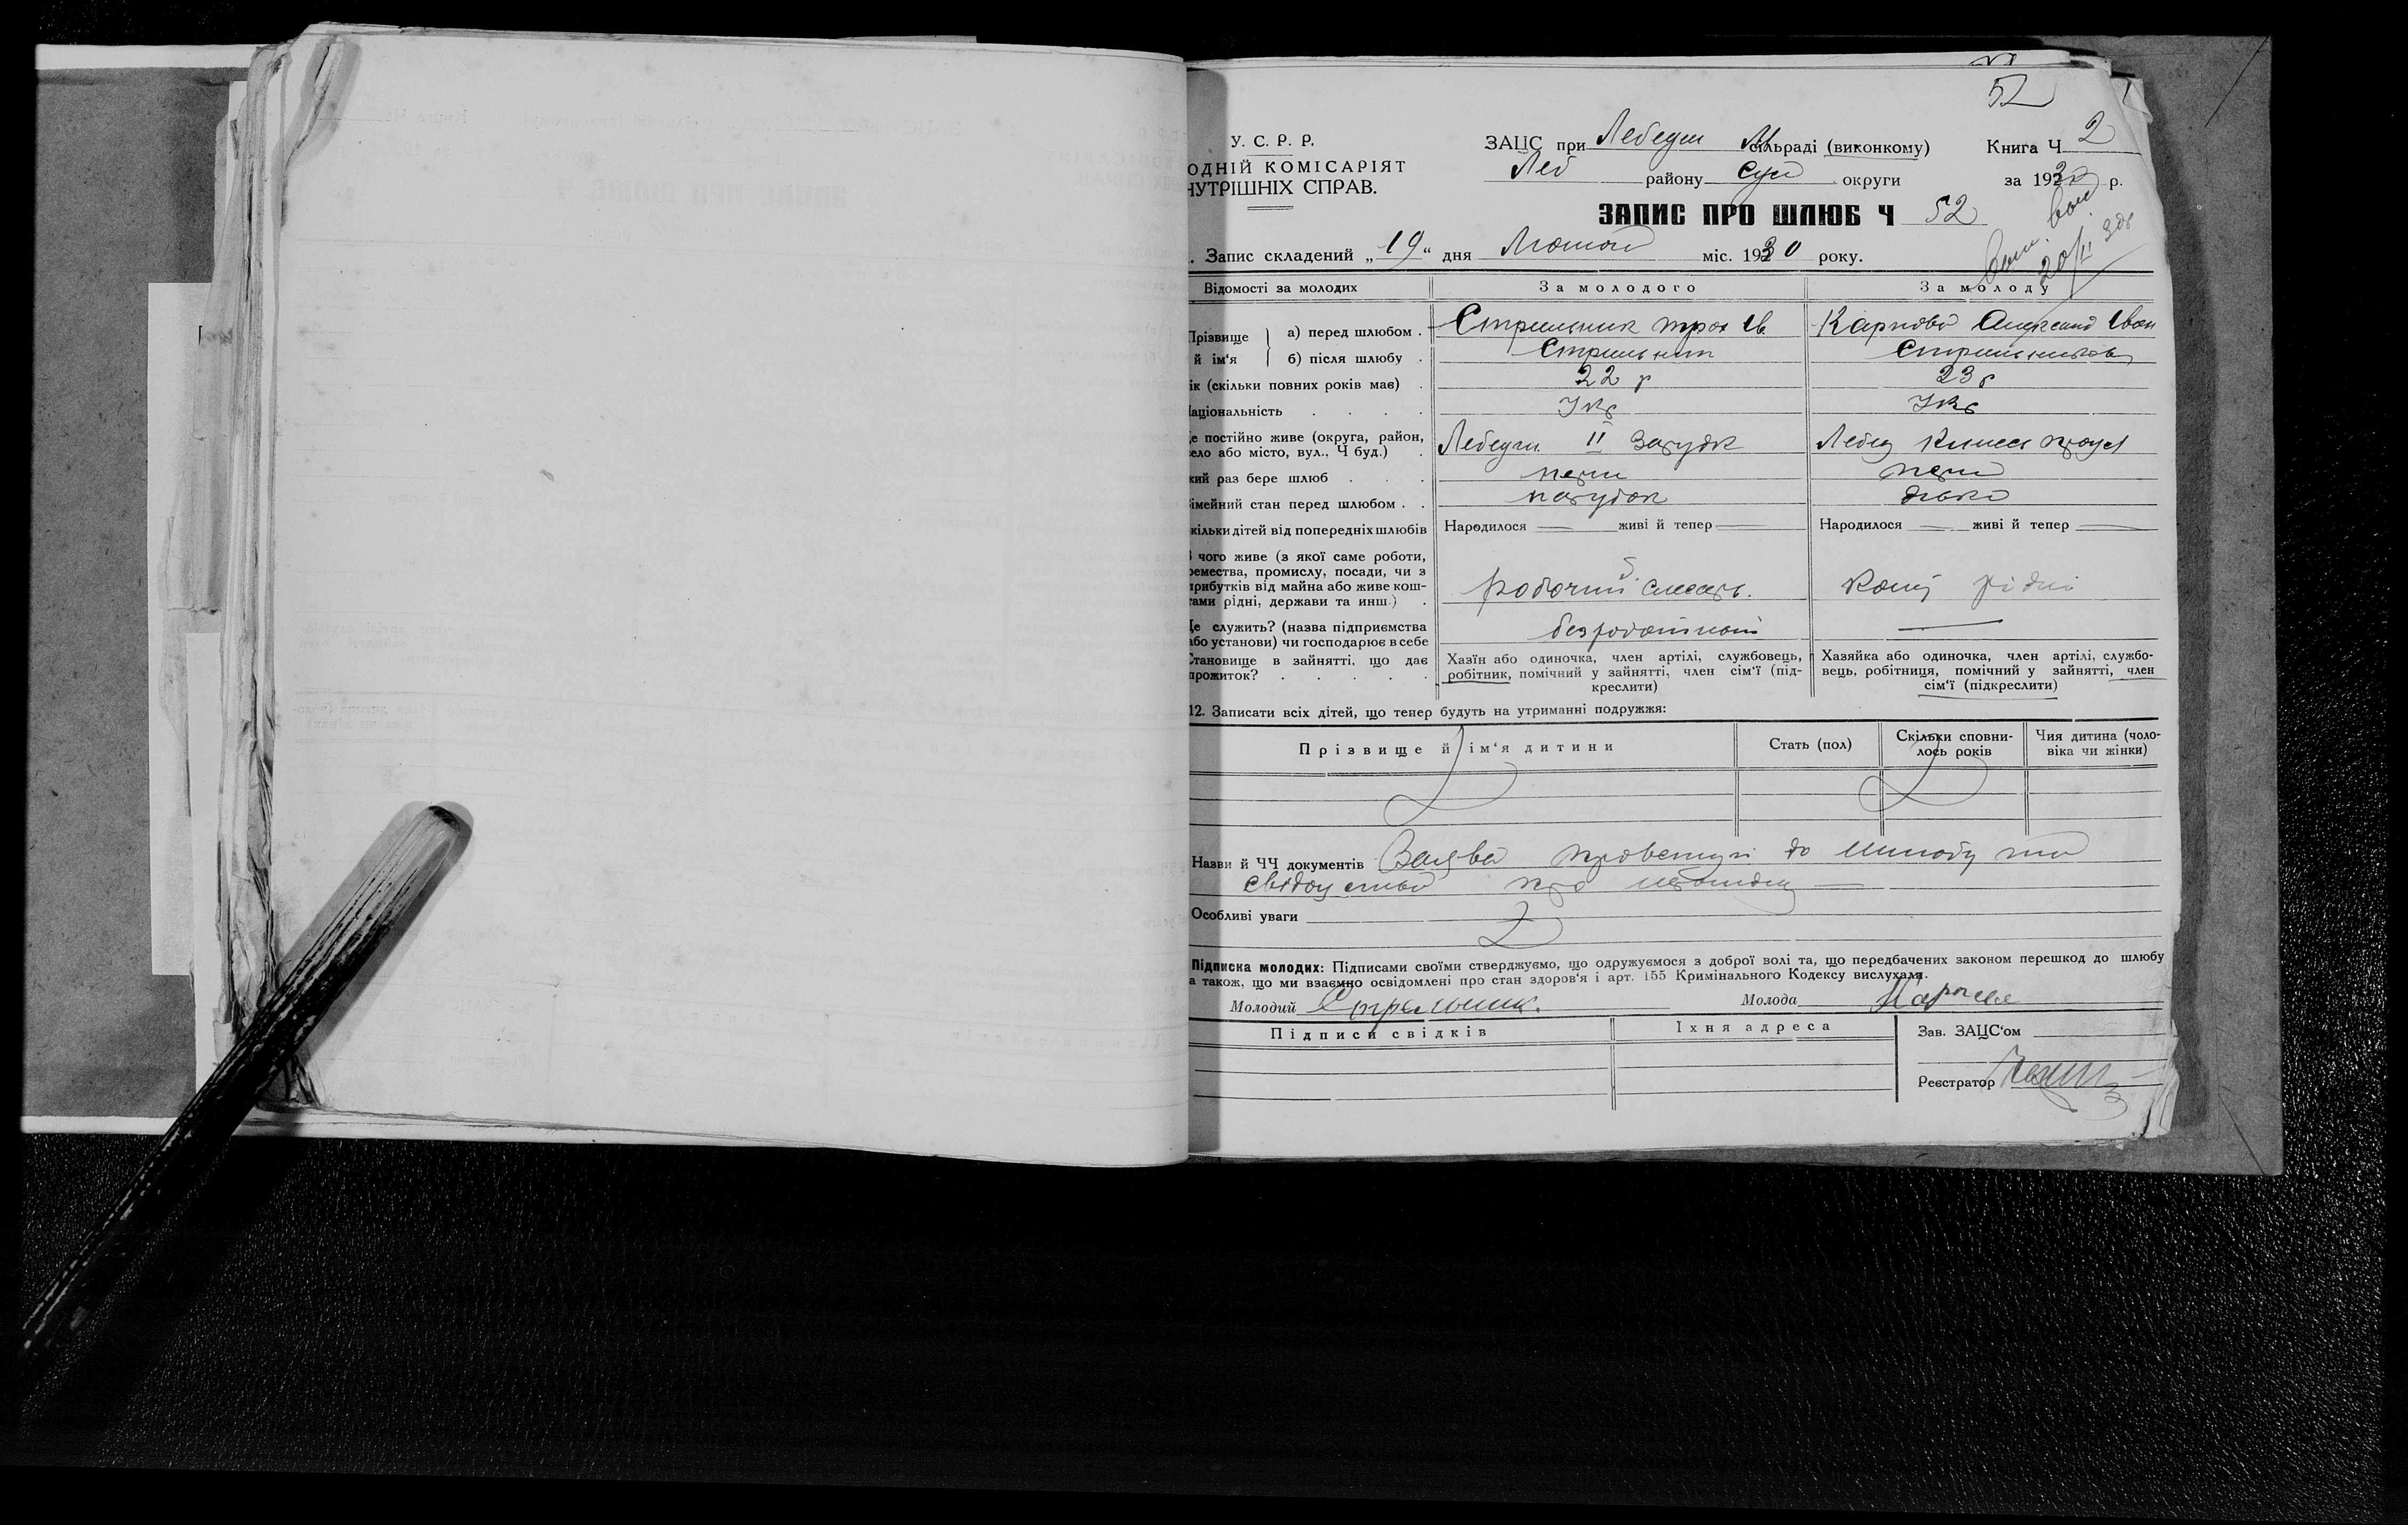 52
У. С. Р. Р.
ОДНІЙ КОМІСАРІЯТ
НУТРІШНІХ СПРАВ.
ЗАЦС при Лебедин М сільраді (виконкому) Книга Ч 2
Леб району Сум округи за 1930 р.
ЗАПИС ПРО ШЛЮБ Ч 52
20/II 30р
. Запис складений „19“ дня Лютого міс. 1930 року.
Відомості за молодих За молодого За молоду
Прізвище й ім‘я
а) перед шлюбом . Стрильник Ів Карпова Іван
б) після шлюбу . Стрильник Стрильникова
ік (скільки повних років має) . 22 р 23 р
аціональність . . . . Укр Укр
е постійно живе (округа, район,
ело або місто, вул., Ч буд.) . Лебедин II Лебед
кий раз бере шлюб . . . перш перш
імейний стан перед шлюбом . . парубок дівка
кільки дітей від попередніх шлюбів Народилося — живі й тепер — Народилося — живі й тепер —
чого живе (з якої саме роботи,
ремества, промислу, посади, чи з
прибутків від майна або живе кош-
тами рідні, держави та инш.) . робочий слесарь. Кошт рідні
е служить? (назва підприємства
або установи) чи господарює в себе безработний —
Становище в зайнятті, що дає
прожиток? . . . . .
Хазїн або одиночка, член артілі, службовець,
робітник, помічний у зайнятті, член сім‘ї (під-
креслити)
Хазяйка або одиночка, член артілі, службо-
вець, робітниця, помічний у зайнятті, член
сім‘ї (підкреслити)
12. Записати всіх дітей, що тепер будуть на утриманні подружжя:
Прізвище й ім‘я дитини Стать (пол) Скільки сповни-
лось років Чия дитина (чоло-
віка чи жінки)
Назви й ЧЧ документів Заява про вступ до шлюбу та
свідоцтва про
Особливі уваги
Підписка молодих: Підписами своїми стверджуємо, що одружуємося з доброї волі та, що передбачених законом перешкод до шлюбу
а також, що ми взаємно освідомлені про стан здоров‘я і арт. 155 Кримінального Кодексу вислухали.
Молодий Стрельник. Молода Карпова
Підписи свідків Їхня адреса Зав. ЗАЦС‘ом
Реєстратор